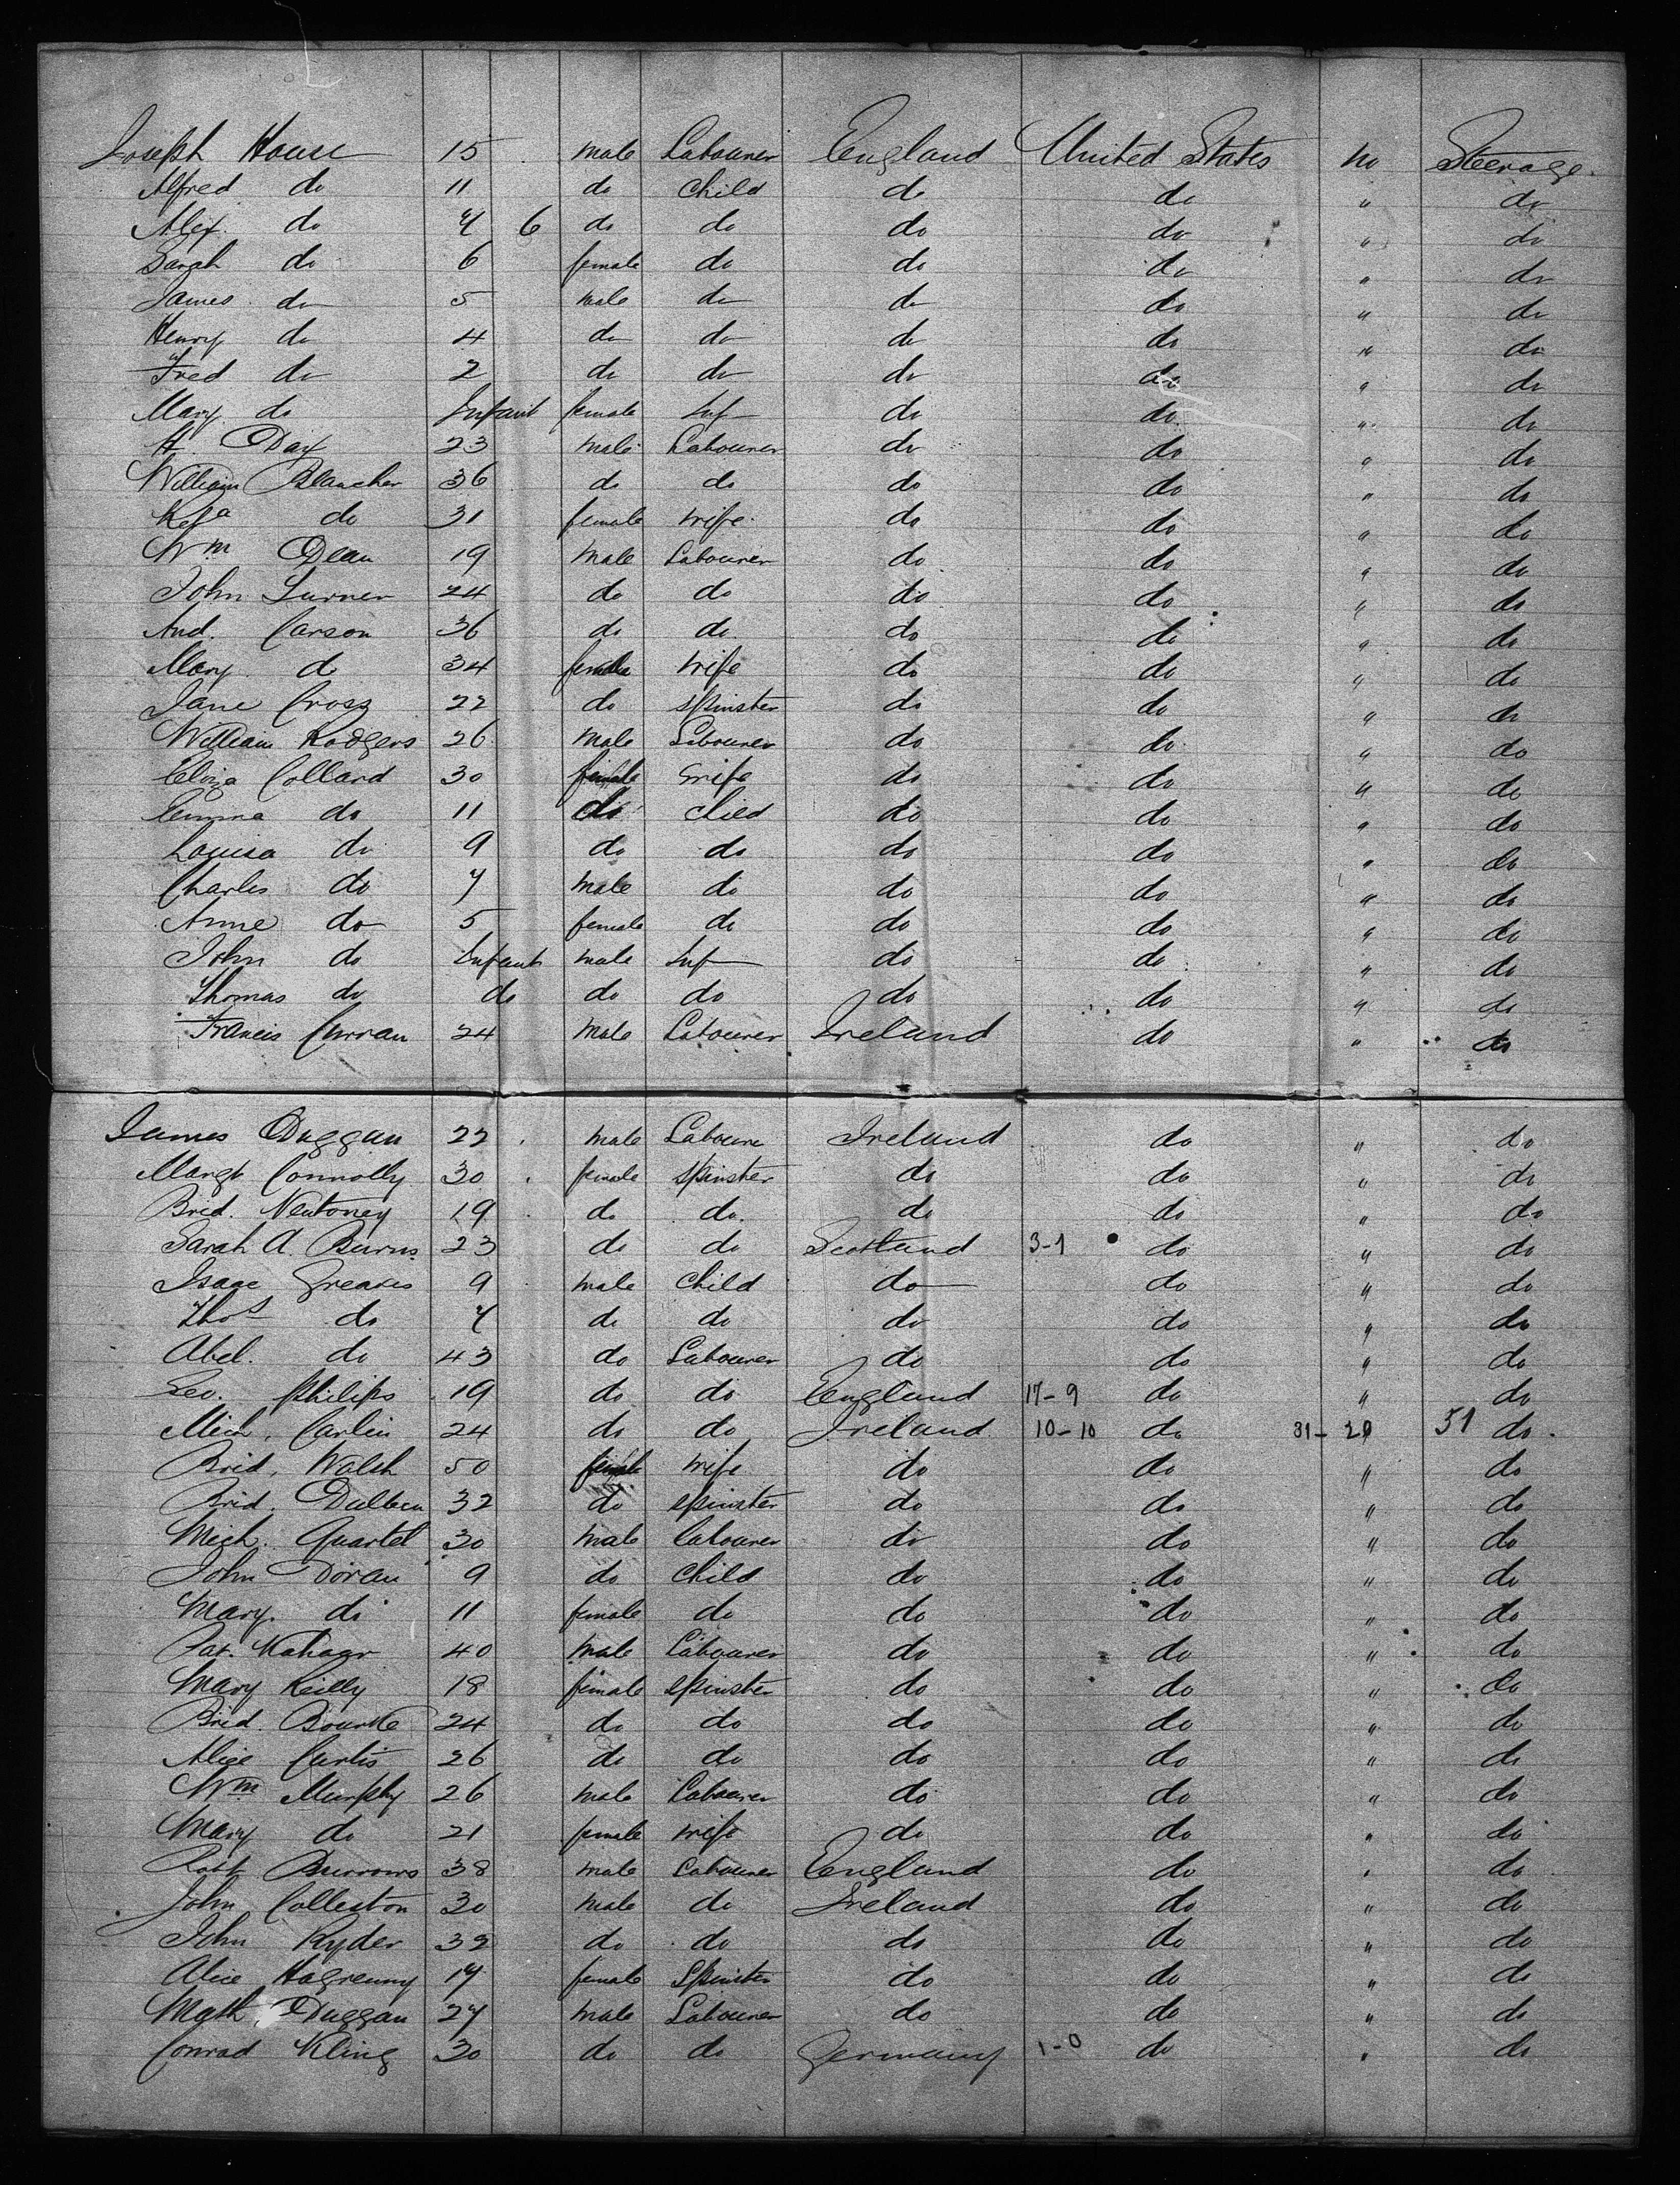 Joseph House 15 male Labourer England United States no Steerage
Alfred do 11 do child do do " do
Alex. do 7 6 do do do do " do
Sarah do 6 female do do do " do
James do 5 male do do do " do
Henry do 4 do do do do " do
Fred do 2 do do do do " do
Mary do Infant female Inf do do " do
H. Day 23 male Labourer do do " do
William Blancher 36 do do do do " do
do 31 female wife do do " do
Wm Dean 19 male Labourer do do " do
John Turner 24 do do do do " do
And. Carson 36 do do do do " do
Mary do 34 female wife do do " do
Jane Cross 22 do spinster do do " do
William Rodgers 26 male Labourer do do " do
Eliza Collard 30 female wife do do " do
Emma do 11 do child do do " do
Louisa do 9 do do do do " do
Charles do 7 male do do do " do
Anne do 5 female do do do " do
John do Infant male Inf do do " do
Thomas do do do do do do " do
Francis Curran 24 male Labourer Ireland do " do
James Duggan 22 male Laboure Ireland do " do
Margt Connolly 30 female spinster do do " do
Brid. 19 do do do do " do
Sarah A. Burns 23 do do Scotland 3-1 do " do
Isaac Greaves 9 male child do do " do
Thos do 7 do do do do " do
Abel. do 43 do Labourer do do " do
Geo. Philips 19 do do England 17-9 do " do
Mich. Carlin 24 do do Ireland 10-10 do 31-20 " 51 do
Brid. Walsh 50 female wife do do " do
Brid. 32 do spinster do do " do
Mich. Quartel 30 male labourer do do " do
John Doran 9 do child do do " do
Mary. do 11 female do do do " do
Pat. 40 male Labourer do do " do
Mary Reilly 18 female spinster do do " do
Brid. Bourke 24 do do do do " do
Alice Curtis 26 do do do do " do
Wm Murphy 26 male Labourer do do " do
Mary do 21 female wife do do " do
Robt Burrows 38 male Labourer England do " do
John Colleston 30 male do Ireland do " do
John Ryder 32 do do do do " do
Alice 17 female Spinster do do " do
Math. Duggan 27 male Labourer do do " do
Conrad Kling 30 do do Germany 1-0 do " do